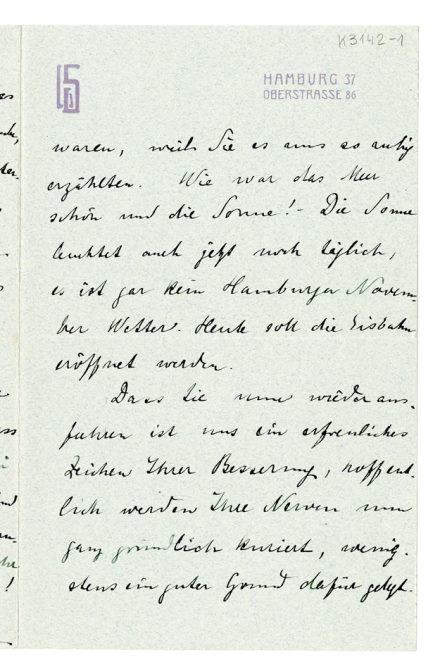 K3142-1
HAMBURG 37
OBERSTRASSE 86
waren, weil Sie es uns so ruhig
erzählten. Wie war das Meer
schön und die Sonne! – Die Sonne
leuchtet auch jetzt noch täglich,
es ist gar kein Hamburger Novem-
ber Wetter. Heute soll die Eisbahn
eröffnet werden.
Dass Sie nun wieder aus-
fahren ist uns ein erfreuliches
Zeichen Ihrer Besserung, hoffent-
lich werden Ihre Nerven nun
ganz gründlich kuriert, wenig-
stens ein guter Grund dafür gelegt.